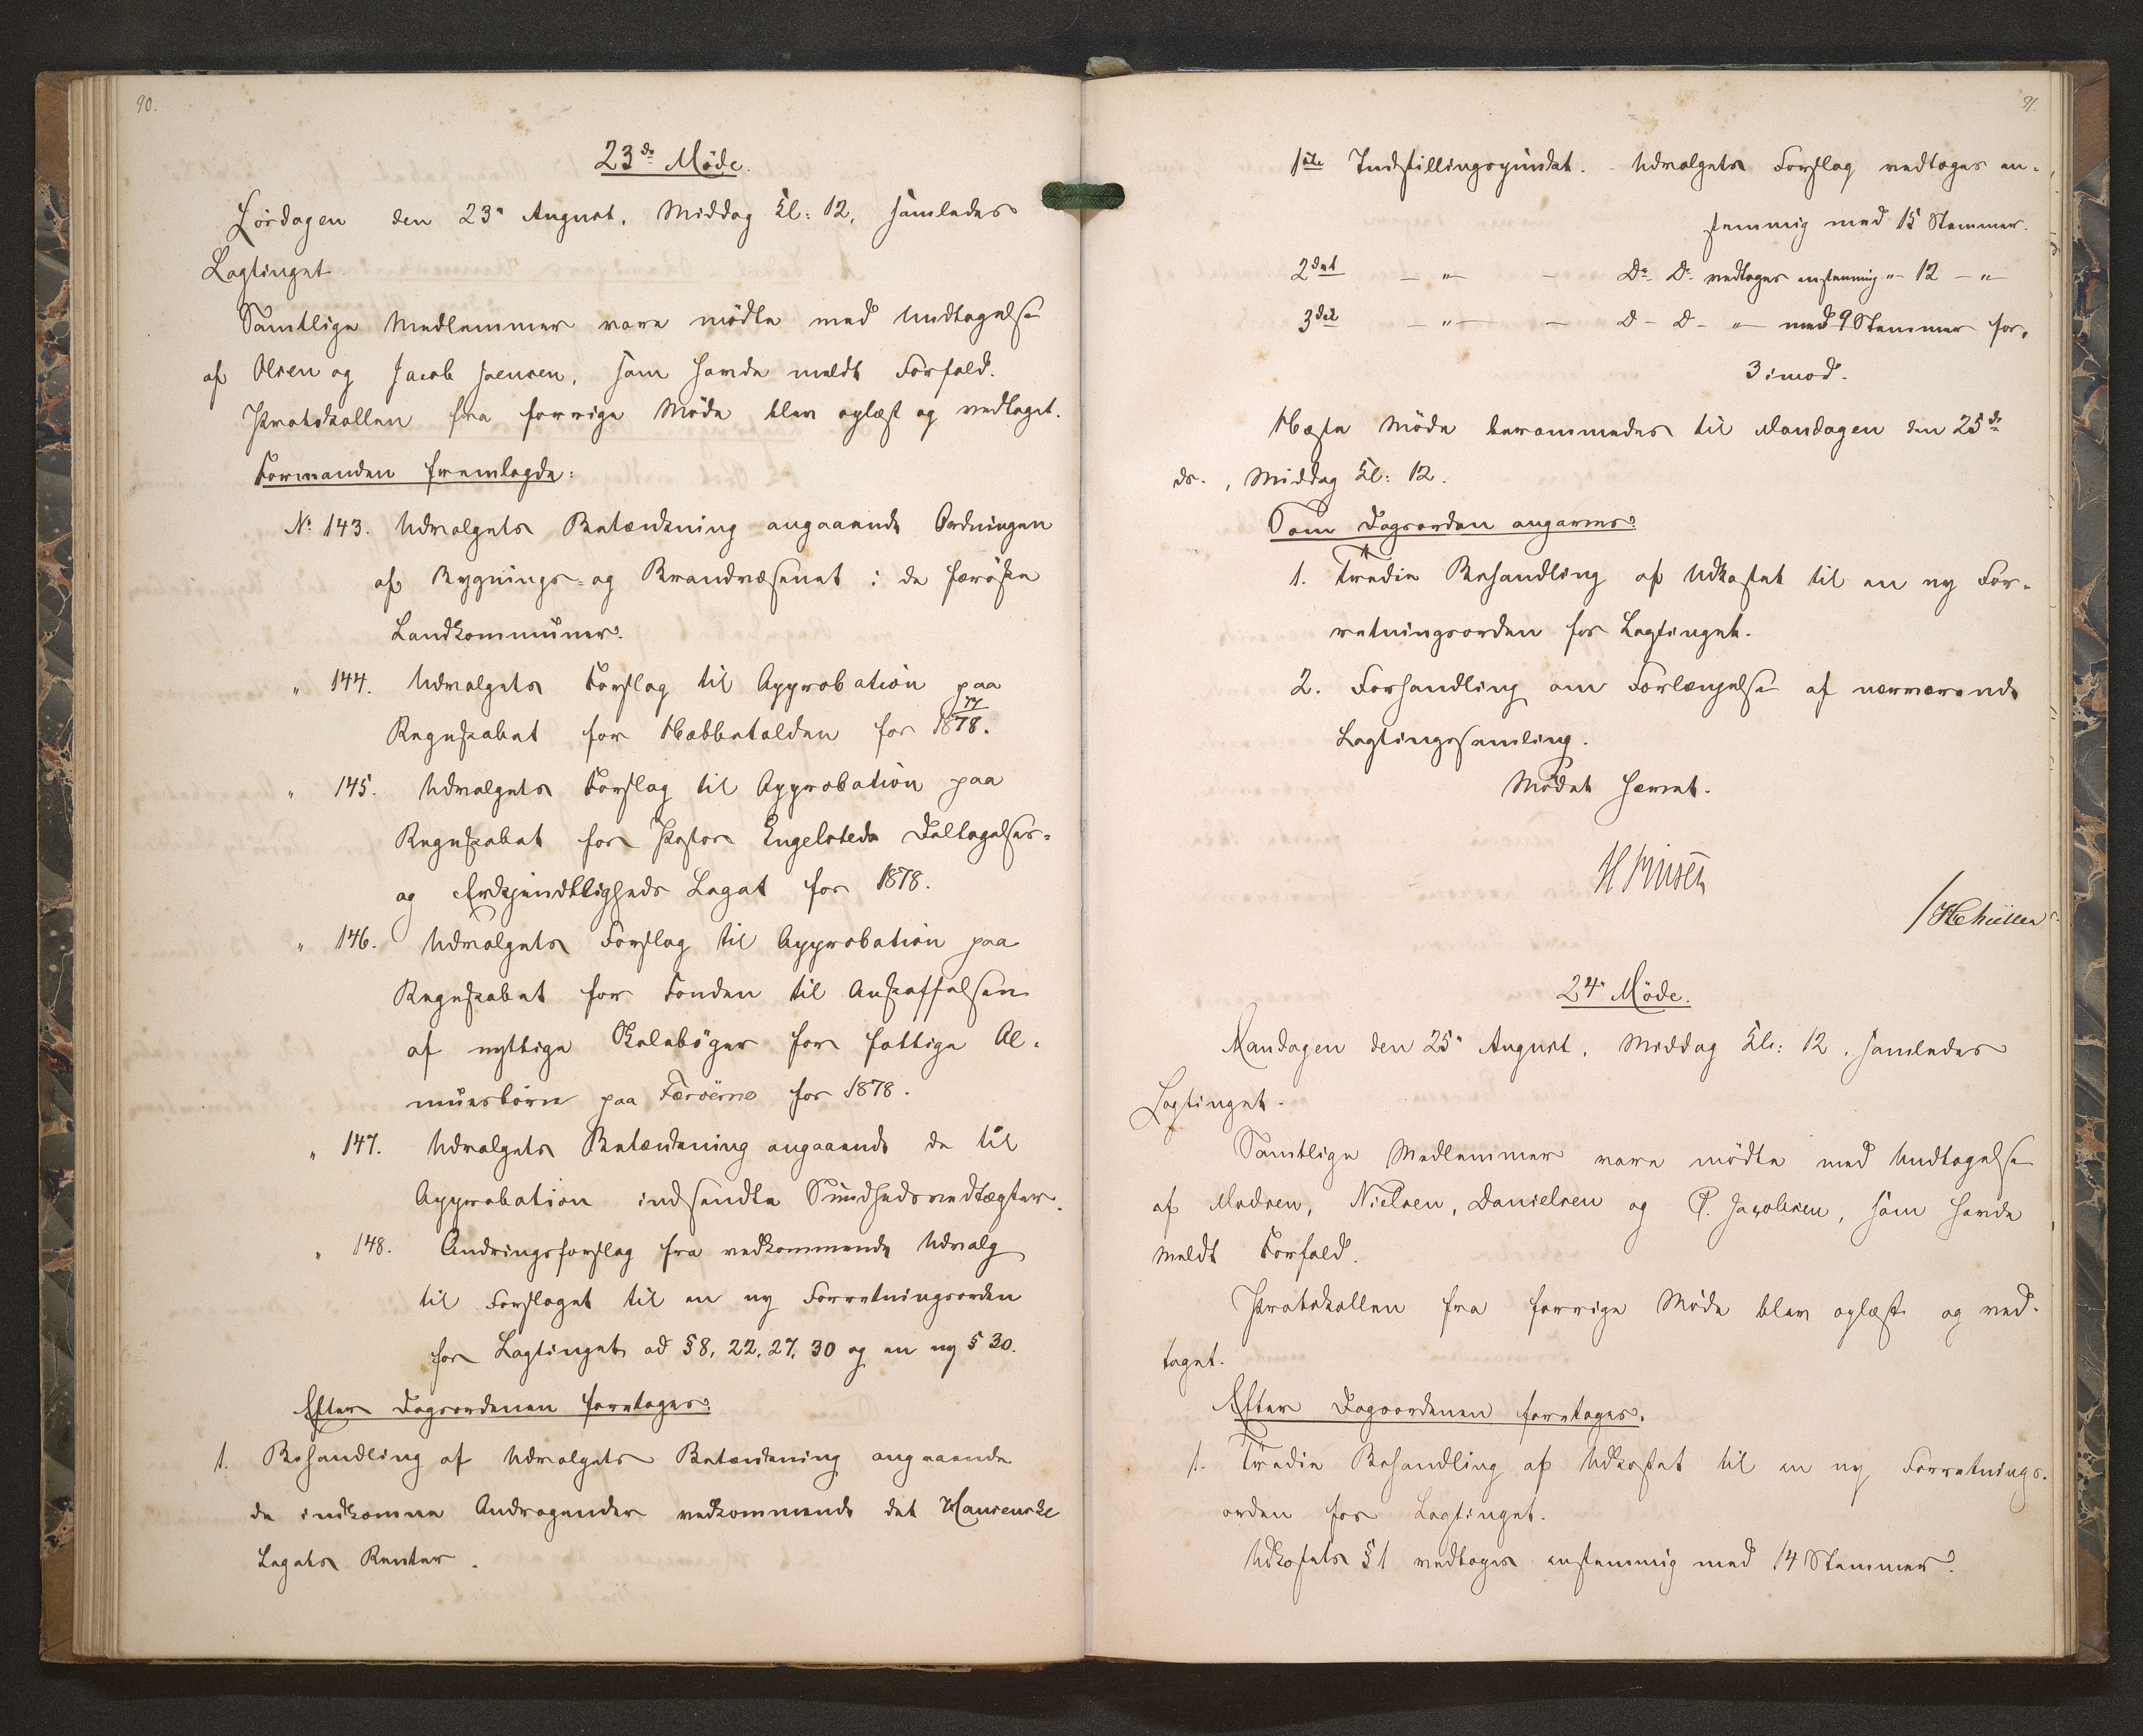 90.
23de Møde.
Lørdagen den 23' August, Middag Kl: 12, samledes
Lagtinget.
Samtlige Medlemmer vare mødte med Undtagelse
af Olsen og Jacob Joensen, som havde meldt Forfald.
Protokollen fra forrige Møde blev oplæst og vedtaget.
Formanden fremlagde:
No 143. Udvalgets Betænkning angaaende Ordningen
af Bygnings- og Brandvæsenet i de færøske
Landkommuner.
" 144. Udvalgets Forslag til Approbation paa
Regnskabet for Næbbetolden for 1877/78.
" 145. Udvalgets Forslag til Approbation paa
Regnskabet for Pastor Engelsteds Deltagelses-
og Erkjendtligheds Legat for 1878.
" 146. Udvalgets Forslag til Approbation paa
Regnskabet for Fonden til Anskaffelsen
af nyttige Skolebøger for fattige Al-
muesbørn paa Færöerne for 1878.
" 147. Udvalgets Betænkning angaaende de til
Approbation indsendte Sundhedsvedtægter.
" 148. Ændringsforslag fra vedkommende Udvalg
til Forslaget til en ny Forretningsorden
for Lagtinget ad § 8, 22, 27, 30 og en ny § 30.
Efter Dagsordenen foretoges:
1. Behandling af Udvalgets Betænkning angaaende
de indkomne Andragender vedkommende det Hansenske
Legats Renter.
91.
1ste Indstillingspunkt. Udvalgets Forslag vedtoges en-
stemmig med 15 Stemmer.
2det — " — Do Do vedtoges enstemmig " 12 — "
3die — " — D - D - " — med 9 Stemmer for,
3 imod.
Næste Møde berammedes til Mandagen den 25de
ds., Middag Kl: 12.
Som Dagsorden angaves:
1. Tredie Behandling af Udkastet til en ny For-
retningsorden for Lagtinget.
2. Forhandling om Forlængelse af nærværende
Lagtingssamling.
Mødet hævet.
/HC Müller
24' Møde.
Mandagen den 25' August, Middag Kl: 12, samledes
Lagtinget.
Samtlige Medlemmer vare mødte med Undtagelse
af Madsen, Nielsen, Danielsen og P. Jacobsen, som havde
meldt Forfald.
Protokollen fra forrige Møde blev oplæst og ved-
taget.
Efter Dagsordenen foretoges:
1. Tredie Behandling af Udkastet til en ny Forretnings-
orden for Lagtinget.
Udkastets § 1 vedtoges enstemmig med 14 Stemmer.